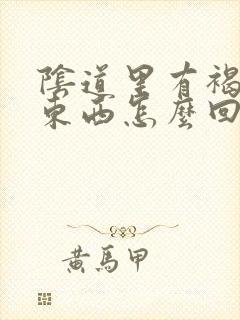 陰道里有褐
東西怎麼回
黃馬甲